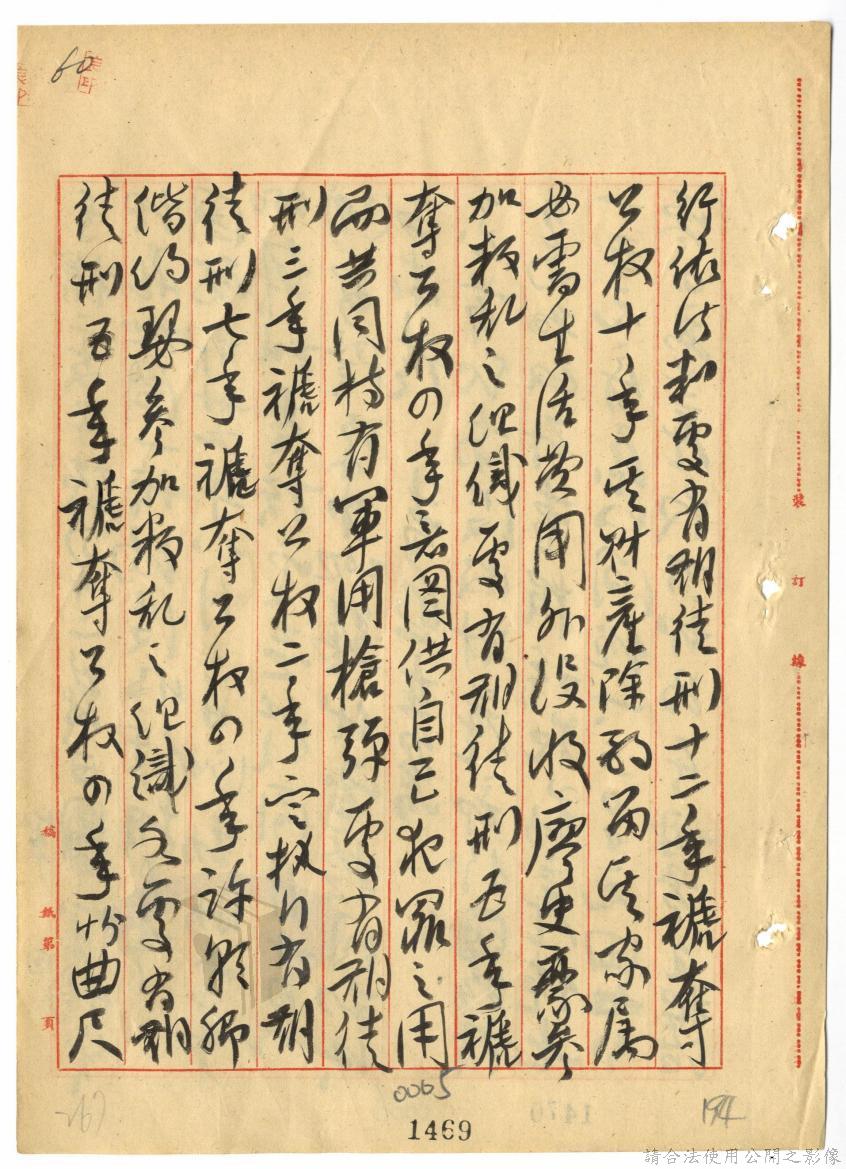 行依法判處有期徒刑十二年褫奪
公权十年其財產除酌留其家屬
必需生活費用外没收廖史豪參
加叛乱之组織處有期徒刑五年褫
奪公权四年意圖供自己犯罪之用
而共同持有軍用槍彈處有期徒
刑三年褫奪公权二年定执行有期
徒刑七年褫奪公权四年許朝卿
偕 參加叛乱之组織各處有期
徒刑五年褫奪公权四年 曲尺
裝
訂
線
稿
紙第
頁
60
0065
1469
194
請合法使用公開之影像